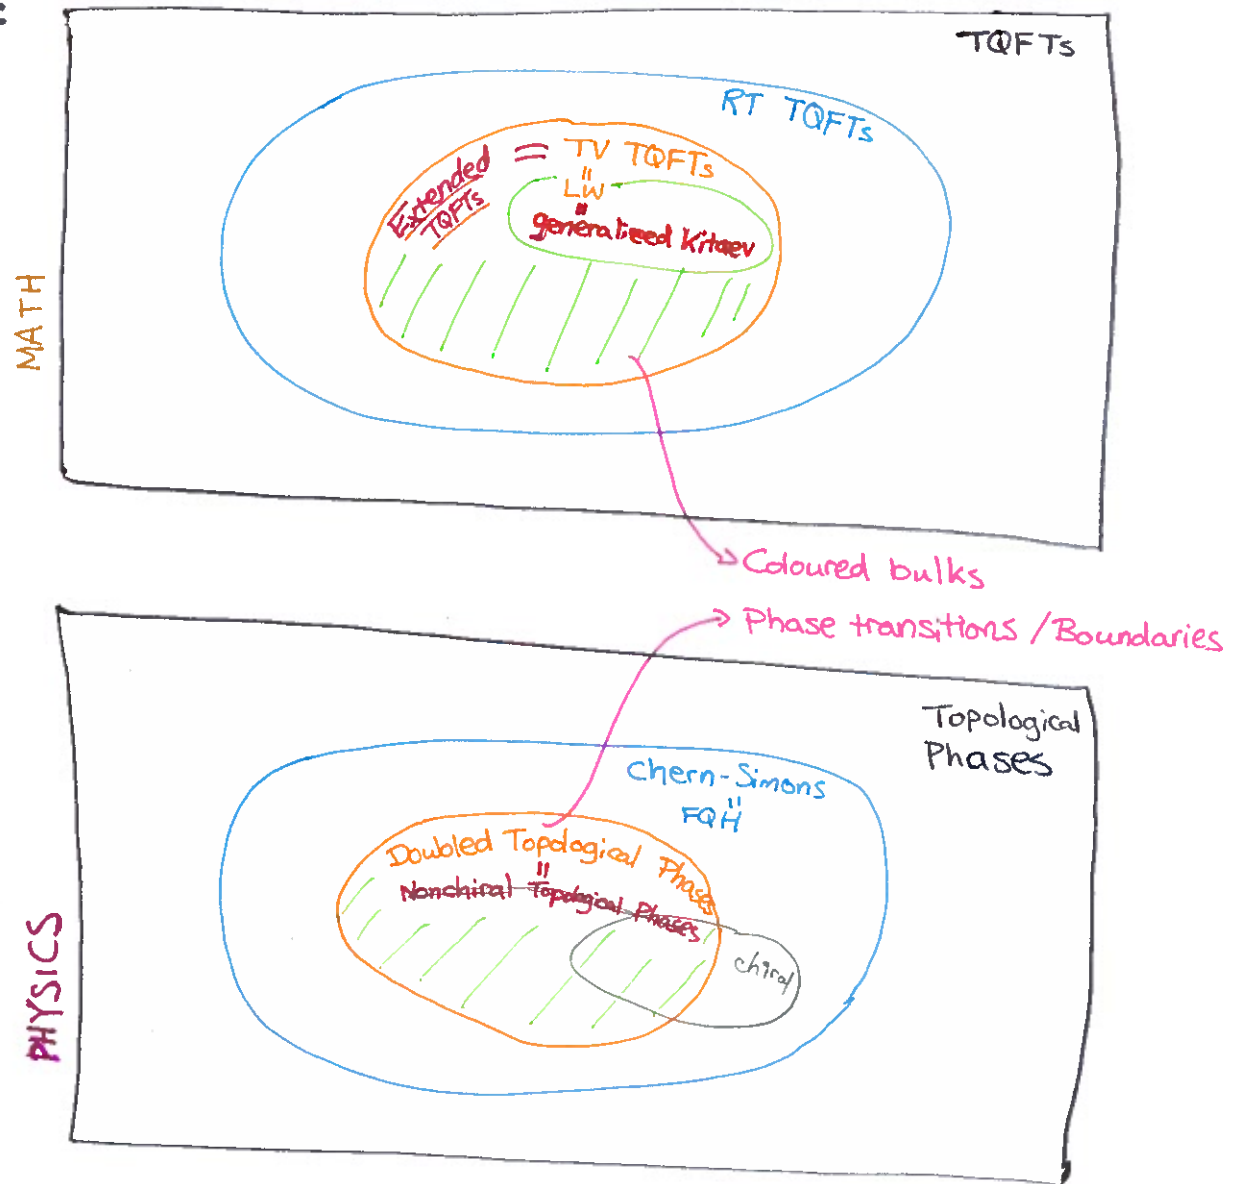 TQFTs
RT TQFTs
Extended = TV TQFTs
TQFTs
=
LW
=
generalized Kitaev
MATH
Coloured bulks
Phase transitions / Boundaries
Topological
Phases
Chern-Simons
=
FQH
Doubled Topological Phases
=
Nonchiral Topological Phases
chiral
PHYSICS